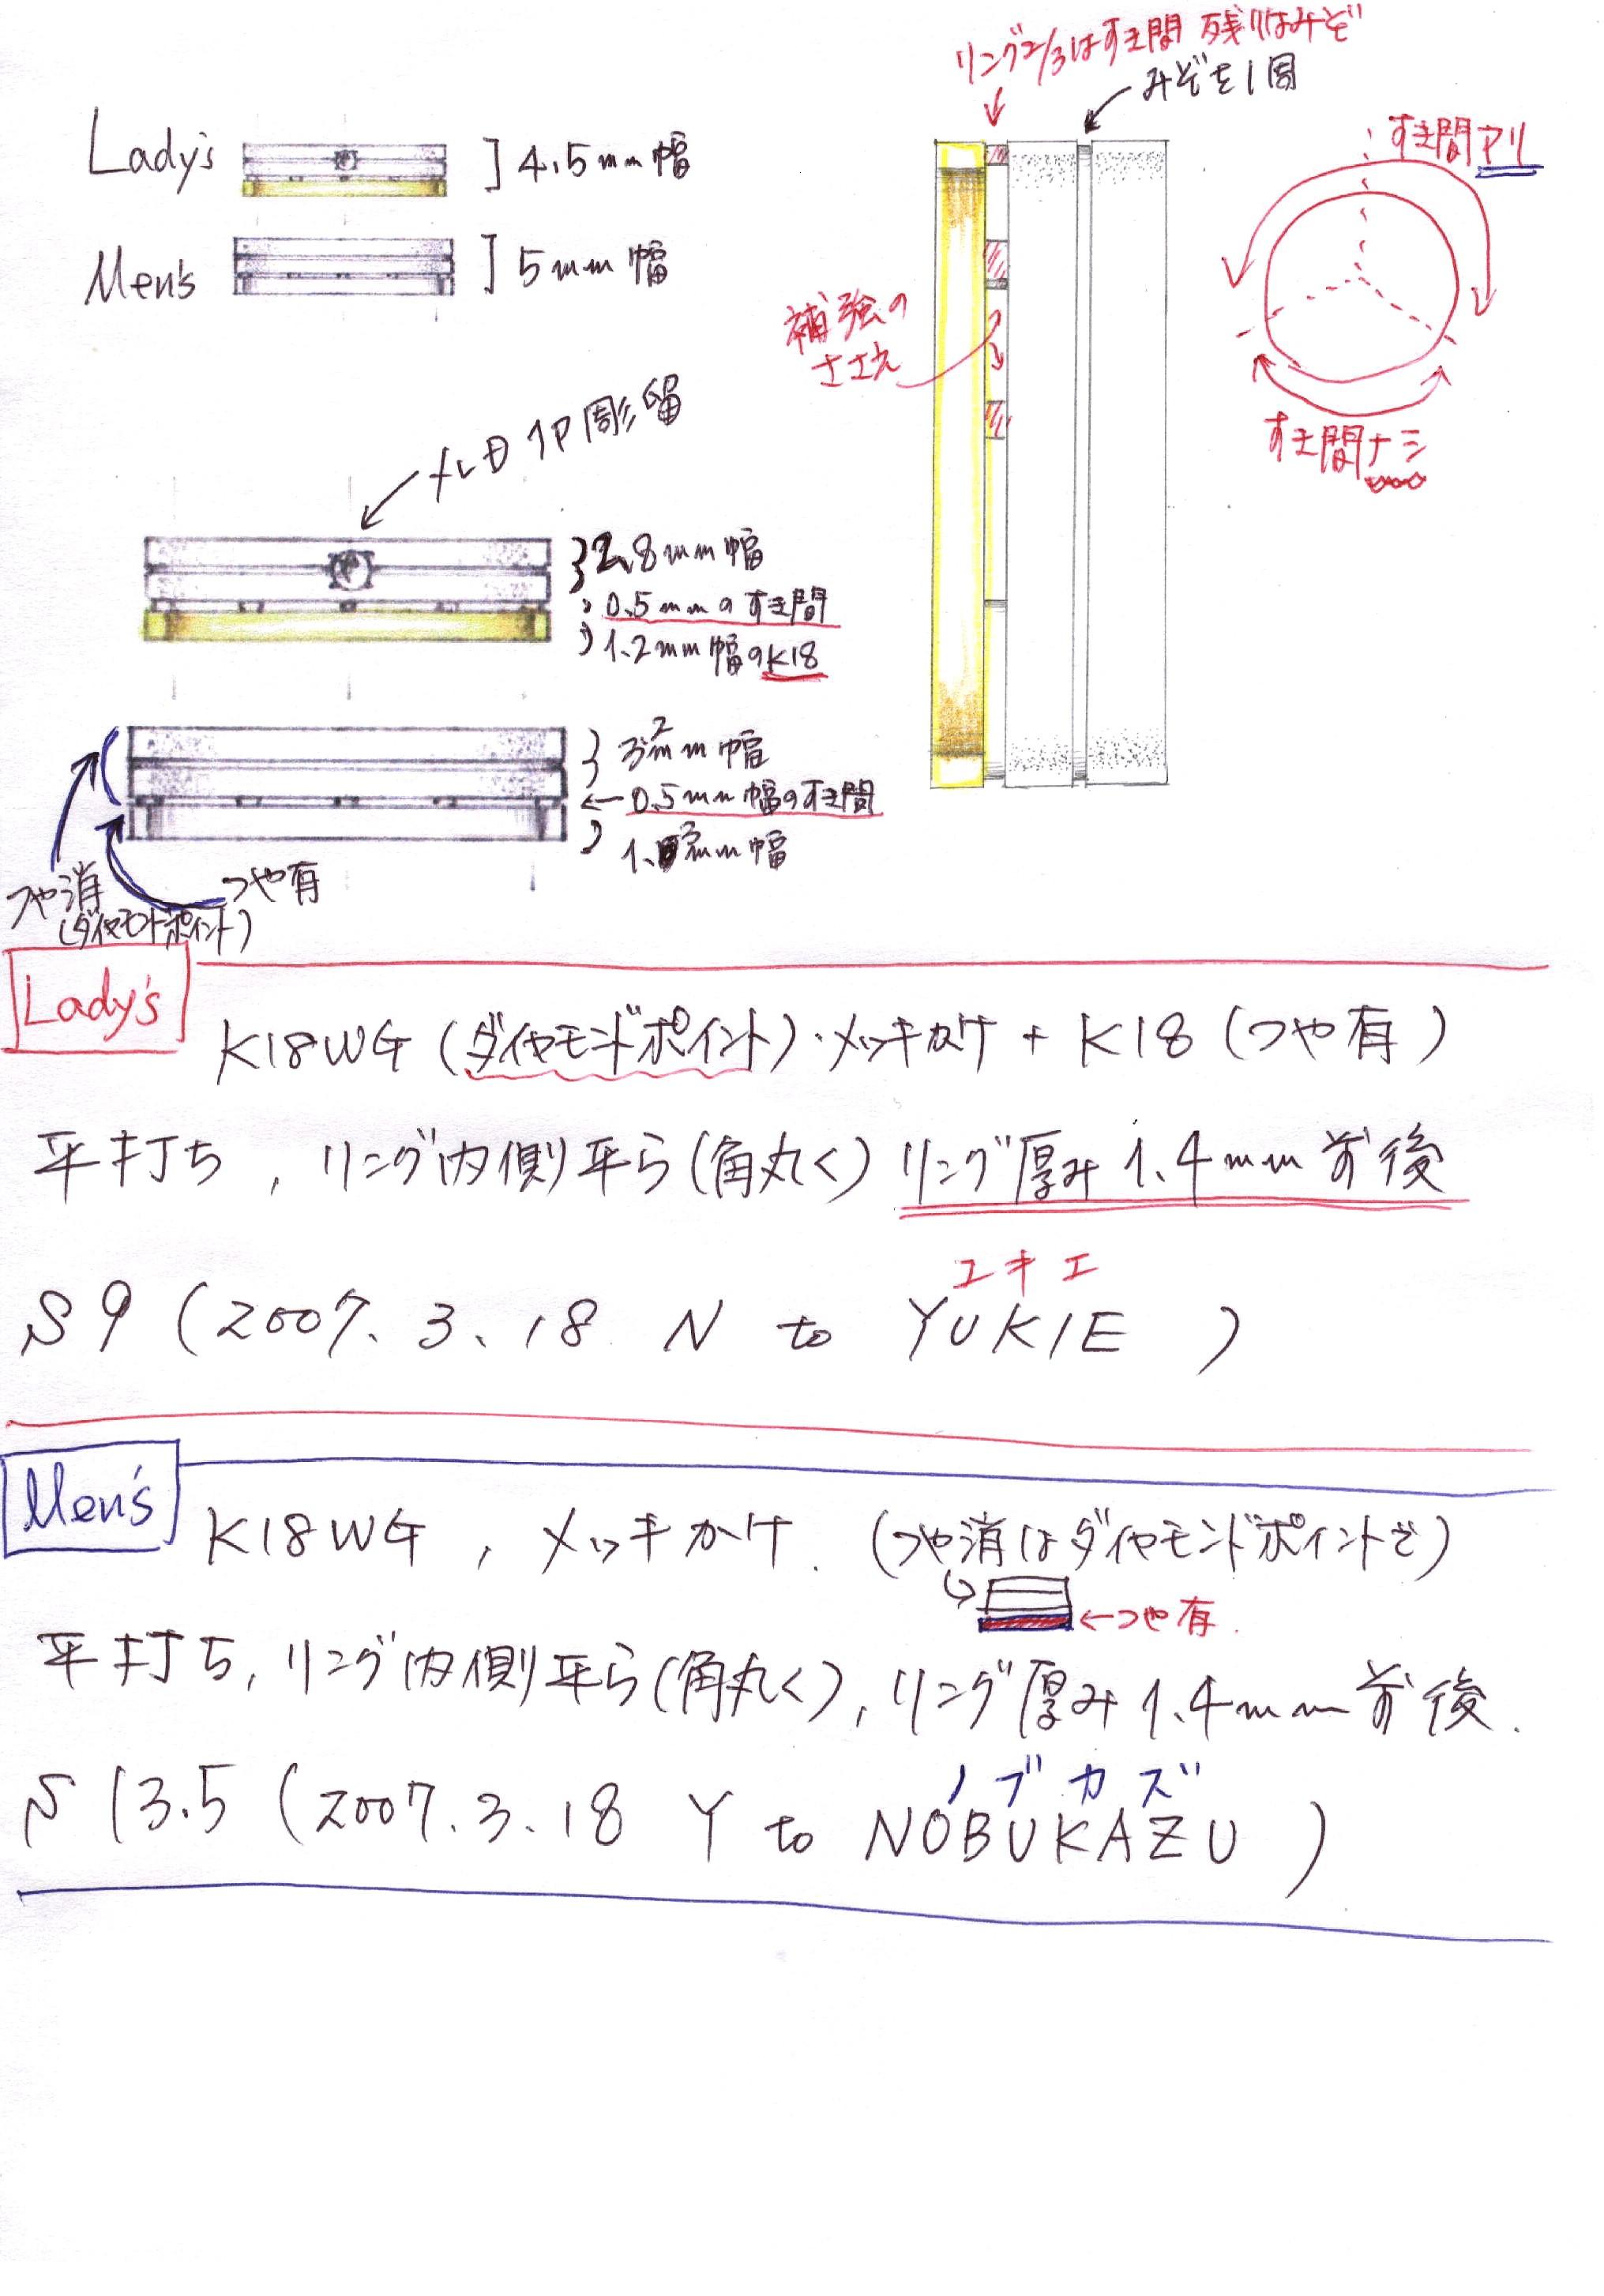 リング2/3はすき間 残りはみぞ
みぞを1周
Lady's
4.5mm幅
Men's
5mm幅
すき間アリ
補強の
ささえ
すき間ナシ
メレD 1P彫留
2.8mm幅
0.5mmのすき間
1.2mm幅のK18
3.2mm幅
0.5mm幅のすき間
1.3mm幅
つや消
(ダイヤモンドポイント)
つや有
Lady's
K18WG(ダイヤモンドポイント)・メッキかけ + K18(つや有)
平打ち, リング内側平ら(角丸く) リング厚み1.4mm前後
ユキエ
S9(2007.3.18 N to YUKIE)
Men's
K18WG, メッキかけ.(つや消はダイヤモンドポイントで)
←つや有.
平打ち, リング内側平ら(角丸く), リング厚み1.4mm前後.
ノブカズ
S13.5(2007.3.18 Y to NOBUKAZU)